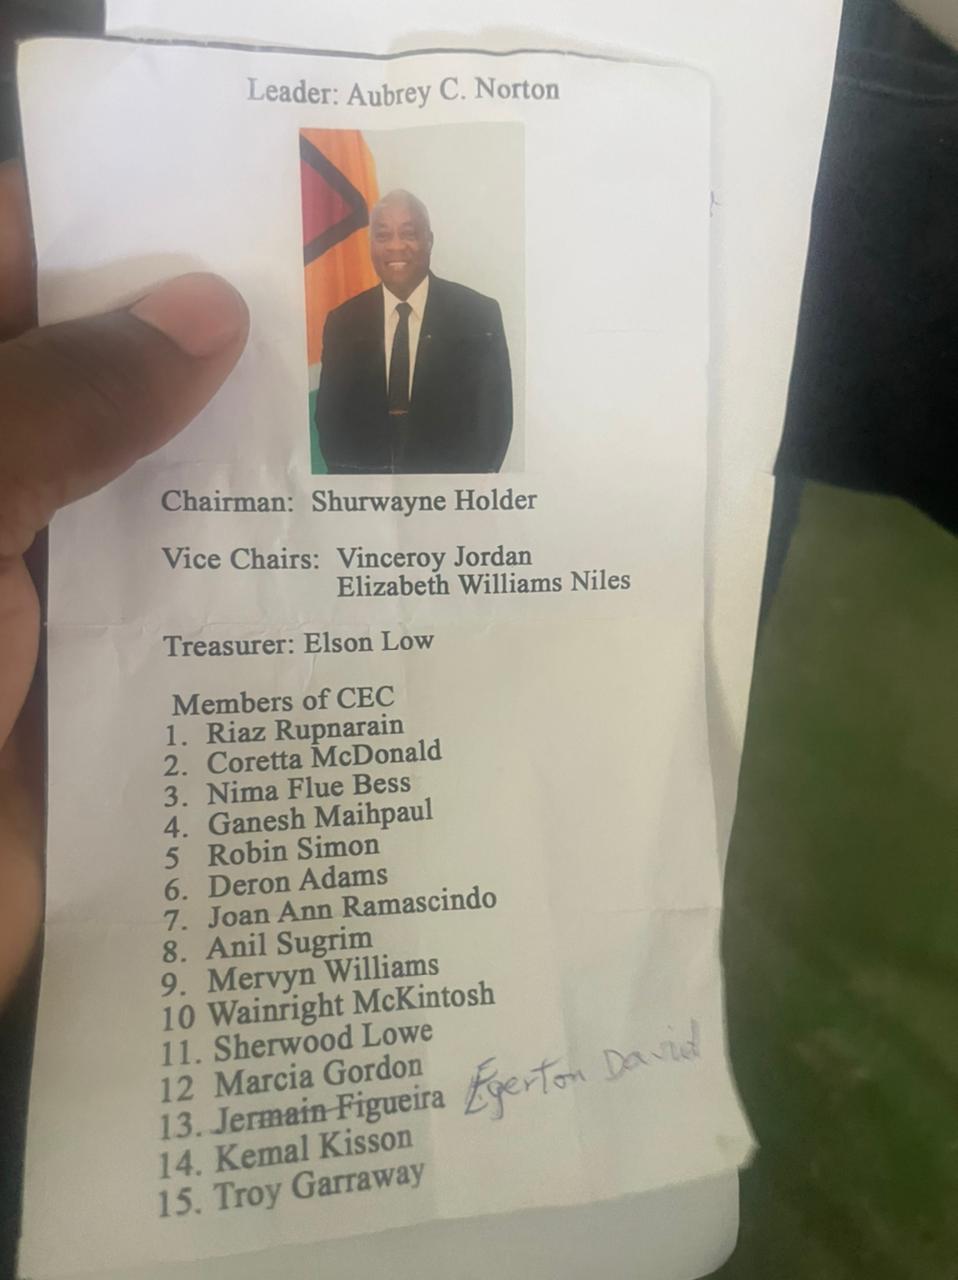 Leader: Aubrey C. Norton
Chairman: Shurwayne Holder
Vice Chairs: Vinceroy Jordan
Elizabeth Williams Niles
Treasurer: Elson Low
Members of CEC
1. Riaz Rupnarain
2. Coretta McDonald
3. Nima Flue Bess
4. Ganesh Maihpaul
5 Robin Simon
6. Deron Adams
7. Joan Ann Ramascindo
8. Anil Sugrim
9. Mervyn Williams
10 Wainright McKintosh
11. Sherwood Lowe
12 Marcia Gordon
13. Jermain Figueira Egerton David
14. Kemal Kisson
15. Troy Garraway